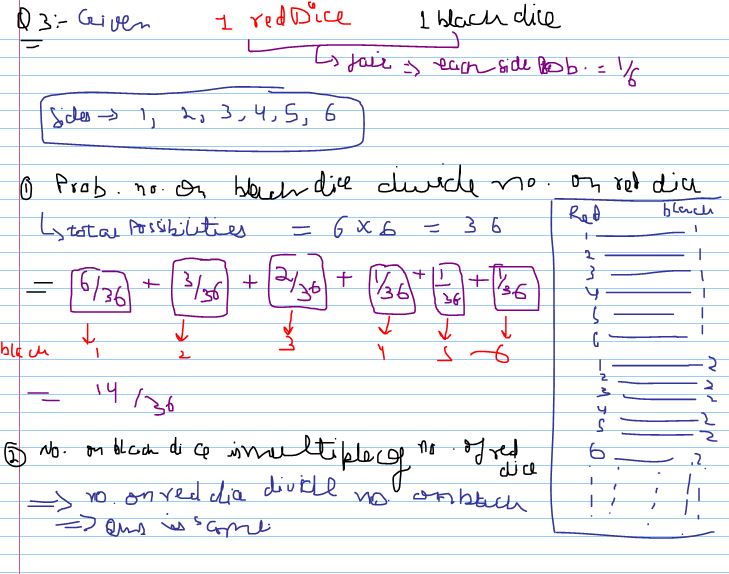 Q 3:- Given 1 red Dice 1 black dice
↳ fair ⇒ each side Prob. = 1/6
Sides → 1, 2, 3, 4, 5, 6
① Prob. no. on black dice divide no. on red dice
↳ total Possibilities = 6 × 6 = 36
= 6/36 + 3/36 + 2/36 + 1/36 + 1/36 + 1/36
black 1 2 3 4 5 6
= 14/36
② no. on black dice is multiple of no. of red
dice
⇒ no. on red dia divide no. on black
⇒ Qns is same
Red black
1 1
2 1
3 1
4 1
5 1
6 1
1 2
2 2
3 2
4
5 2
2
6 2